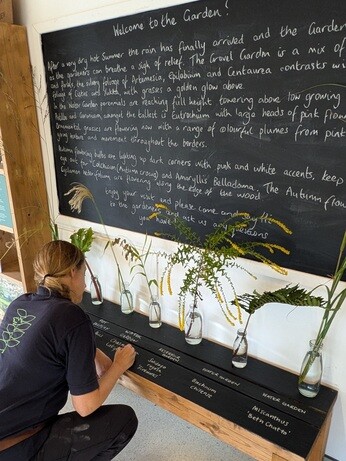 Welcome to the Garden!
After a very dry hot Summer the rain has finally arrived and the Garden
as the gardeners can breathe a sigh of relief. The Gravel Garden is a mix of
and fresh, the silvery foliage of Artemesia, Epilobium and Centaurea contrasts wi
foliage of Cistus and with grasses a golden glow above.
In the Water Garden perennials are reaching full height towering above low growing
and Geranium, amongst the tallest is Eutrochium with large heads of pink flow
Ornamental grasses are flowering now with a range of colourful plumes from pink
texture and movement throughout the borders.
Autumn flowering bulbs are lighting up dark corners with pink and white accents, keep
eye out for Colchicum (Autumn crocus) and Amaryllis Belladonna. The Autumn flow
Cyclamen hederifolium are flowering along the edge of the wood
Enjoy your visit and please come and
in the garden
you have any questions
WATER GARDEN
WATER GARDEN
WATER GARDEN
Solidago
rugosa
'Fireworks'
Rachnium
chilense
Miscanthus
'Beth Chatto'